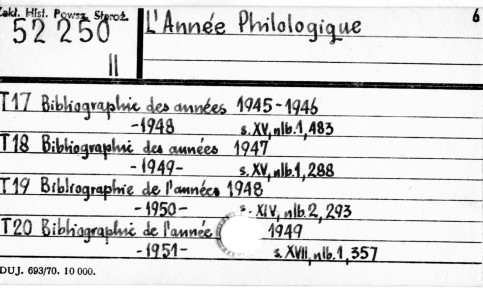 Zakł. Hist. Powsz. Staroż.
52 250
II
L'Année Philologique
6
T17 Bibliographie des années 1945-1946
-1948 s. XV, nlb. 1, 483
T18 Bibliographie des années 1947
-1949- s. XV, nlb. 1, 288
T19 Bibliographie de l'années 1948
-1950- s. XIV, nlb. 2, 293
T20 Bibliographie de l'année 1949
-1951- s. XVII, nlb. 1, 357
DUJ. 693/70. 10 000.